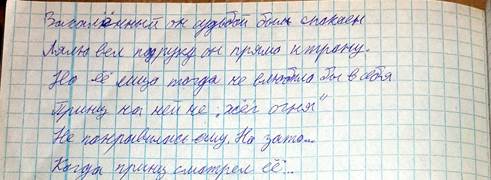 Закалённый он судьбой был спокаен
Лялю вел подруку он прямо к трону.
Но её лица тогда не влюбила бы в себя
Принц на ней не "жёг огня"
Не понравилась ему. Но зато...
Когда принц смотрел её...